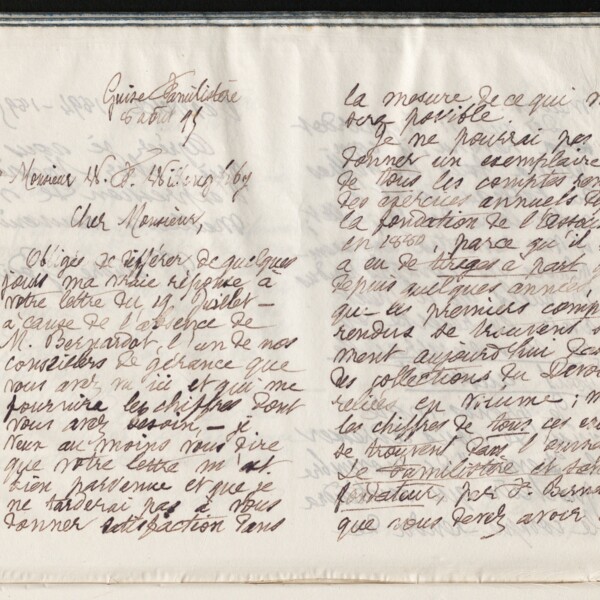 Guise Familistère
Monsieur W. F.
Cher Monsieur,
Obligée de différer de quelques
jours ma vraie réponse à
votre lettre du 19 Juillet —
à cause de l'absence de
M. Bernardot, l'un de nos
conseillers de gérance que
vous avez vu ici et qui me
fournira les chiffres dont
vous avez besoin, — je
veux au moins vous dire
que votre lettre m'est
bien parvenue et que je
ne tarderai pas à vous
donner satisfaction dans
la mesure de ce qui m
sera possible.
Je ne pourrai pas
donner un exemplaire
de tous les comptes ren
des exercices annuels de
la fondation de l'Associa
en 1880, parce qu'il
a eu de tirages à part q
depuis quelques années,
que les premiers comp
rendus se trouvent s
ment aujourd'hui dans
les collections du Devoi
reliées en volume; m
les chiffres de tous ces ex
se trouvent dans l'ouvra
Le Familistère et son
fondateur, par F. Berna
que vous devez avoir